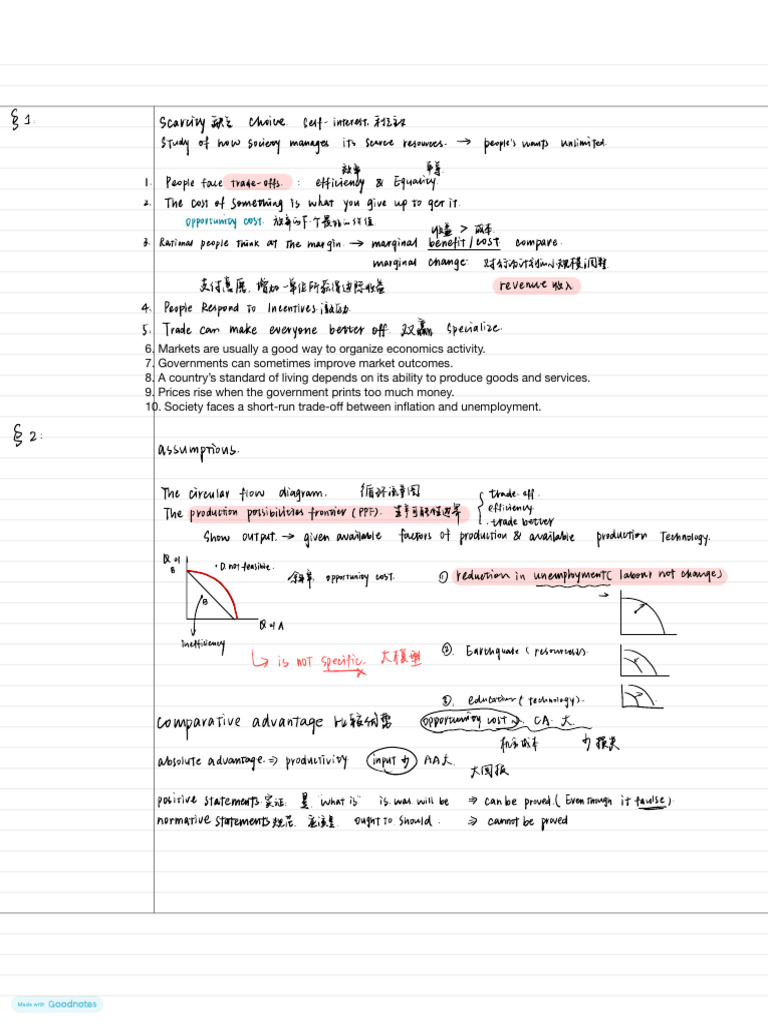 § 1.
Scarcity 缺乏 Choice. Self-interest. 利己
Study of how society manages its scarce resources. → people's wants unlimited.
效率 平等.
1. People face trade-offs. : efficiency & Equality.
2. The cost of something is what you give up to get it.
opportunity cost. 放弃的下个最好的价值
收益 > 成本
3. Rational people think at the margin. → marginal benefit / cost compare.
marginal change: 对行动计划的小规模调整
支付意愿. 增加一单位所获得边际收益 revenue 收入
4. People Respond to Incentives. 激励
5. Trade can make everyone better off 双赢 specialize.
6. Markets are usually a good way to organize economics activity.
7. Governments can sometimes improve market outcomes.
8. A country's standard of living depends on its ability to produce goods and services.
9. Prices rise when the government prints too much money.
10. Society faces a short-run trade-off between inflation and unemployment.
§ 2:
assumptions.
The circular flow diagram. 循环流量图
The production possibilities frontier (PPF). 生产可能性边界
trade-off.
efficiency
trade better
Show output. → given available factors of production & available production Technology.
Q of B
• D. not feasible.
B
Q of A
Inefficiency
斜率. opportunity cost.
① reduction in unemployment ( labour not change)
→
↳ is not specific. 大模型
②. Earthquake ( resources).
③. education ( technology).
comparative advantage 比较优势 opportunity cost ↘ CA. 大
机会成本 少 损失
absolute advantage. ⇒ productivity input 少 AA大.
大回报
positive statements. 实证: 是 "what is" is. was. will be ⇒ can be proved. ( Even though it faulse).
normative statements 规范. 应该是. ought to. should. ⇒ cannot be proved
Made with Goodnotes